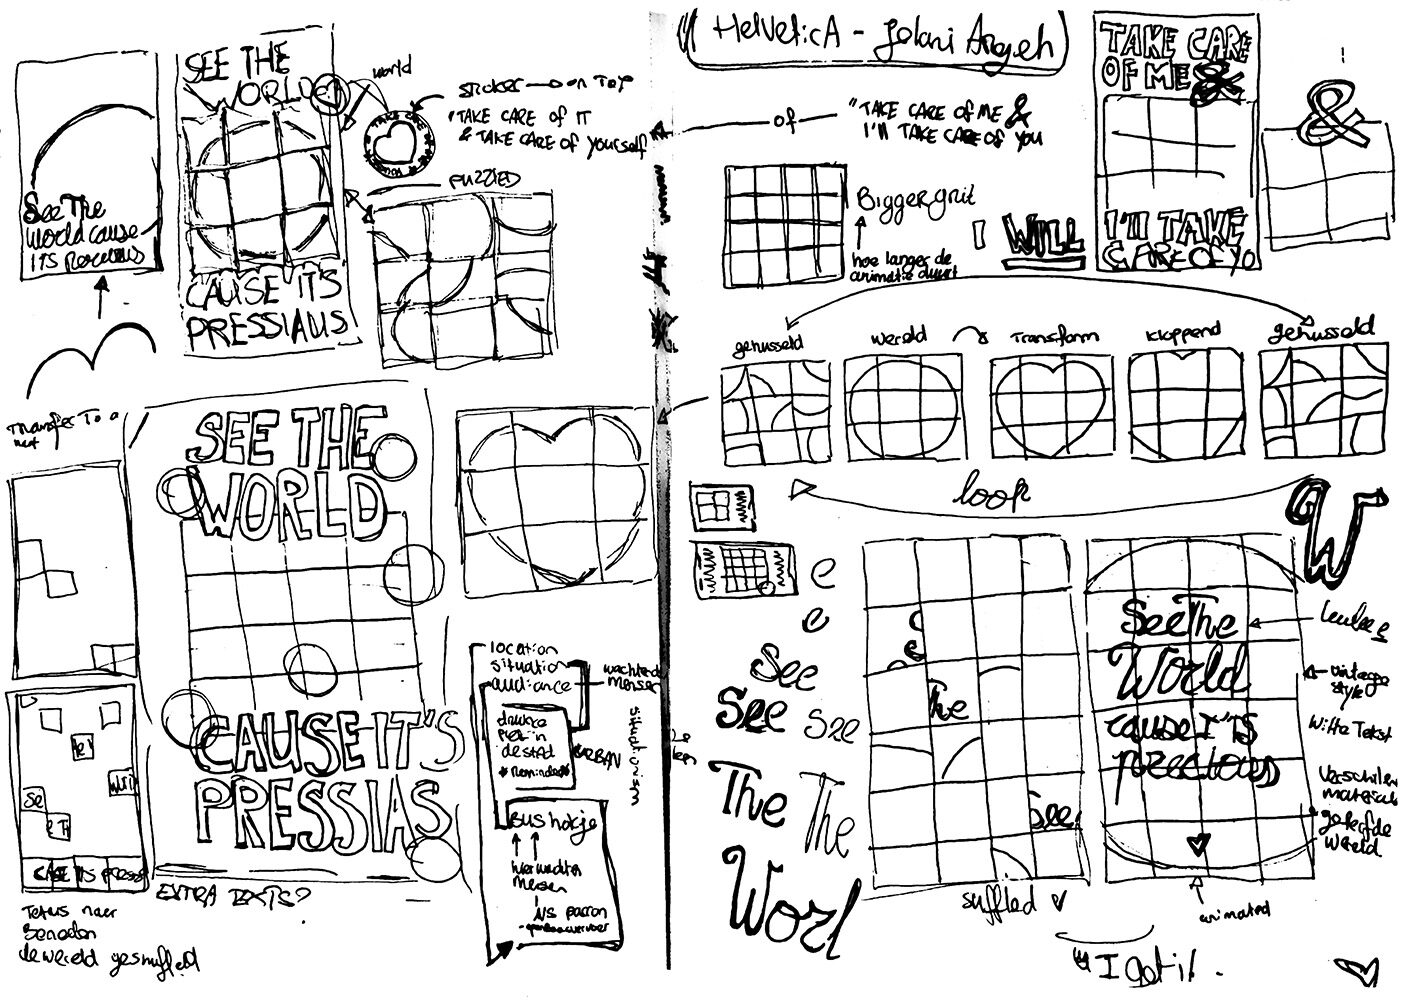 See The
World cause
ITS
SEE THE
WORLD
CAUSE IT'S
PRESSIAUS
world
STICKER → on TOP
"TAKE CARE OF IT
& TAKE CARE OF yourself
PUZZLED
TRANSFER TO
SEE THE
WORLD
CAUSE IT'S
PRESSIAS
EXTRA TEXTS?
Se
naar
Beneden
de wereld gesnuffled
location
situation
audiance
wachtende
mensen
drukke
plek in
de stad
URBAN
Bushokje
mensen
HelveticA - Jolani Angeh
of
"TAKE CARE OF ME &
I'll TAKE CARE OF YOU
Bigger grit
hoe langer de
animatie duurt
I WILL
TAKE CARE
OF ME &
I'll TAKE
CARE OF YO
&
gehusseld
wereld
Transform
kloppend
gehusseld
loop
W
e
e
See
See
See
The
The
Worl
The
See
suffled
See The
World
cause IT'S
precious
vintage
style
Witte Tekst
wereld
animated
I got it.